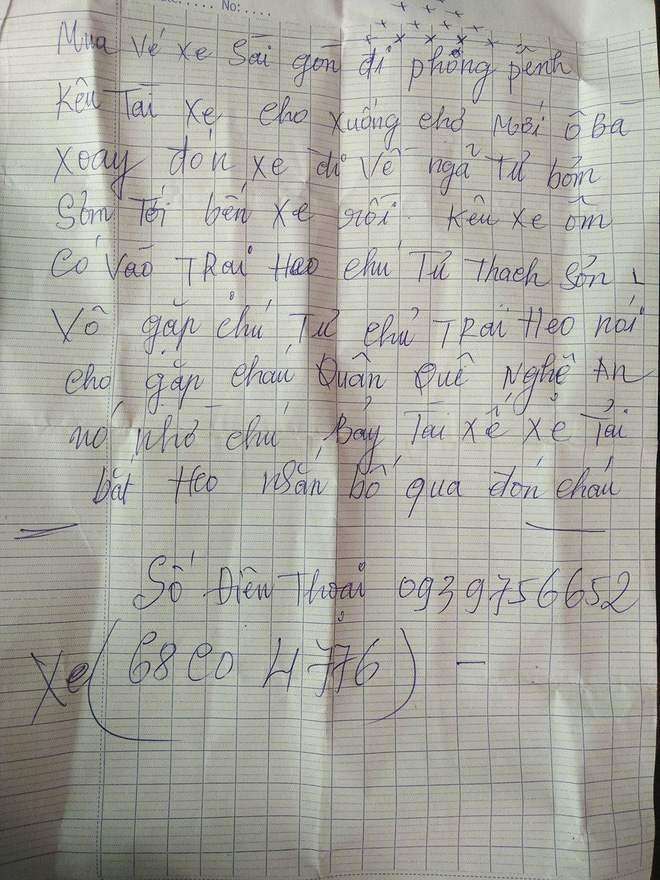 No: . . . .
Mua Vé xe Sài gòn đi phông pênh
Kêu Tài xe cho xuống chợ Mới Ô Bà
Xoay đón xe đi Về ngã Tư bốm
Sơm Tới bến xe rồi. Kêu xe ôm
Có Vào TRại Heo chú Tư Thach Sơn
Vô gặp chú Tư chủ TRại Heo nói
cho gặp cháu Quân Quê Nghệ An
nó nhờ chú Bảy Tài xế xe Tải
bắt Heo nhắn bố qua đón cháu
Số Điện Thoại 0939756652
Xe (68 C0 4776) –